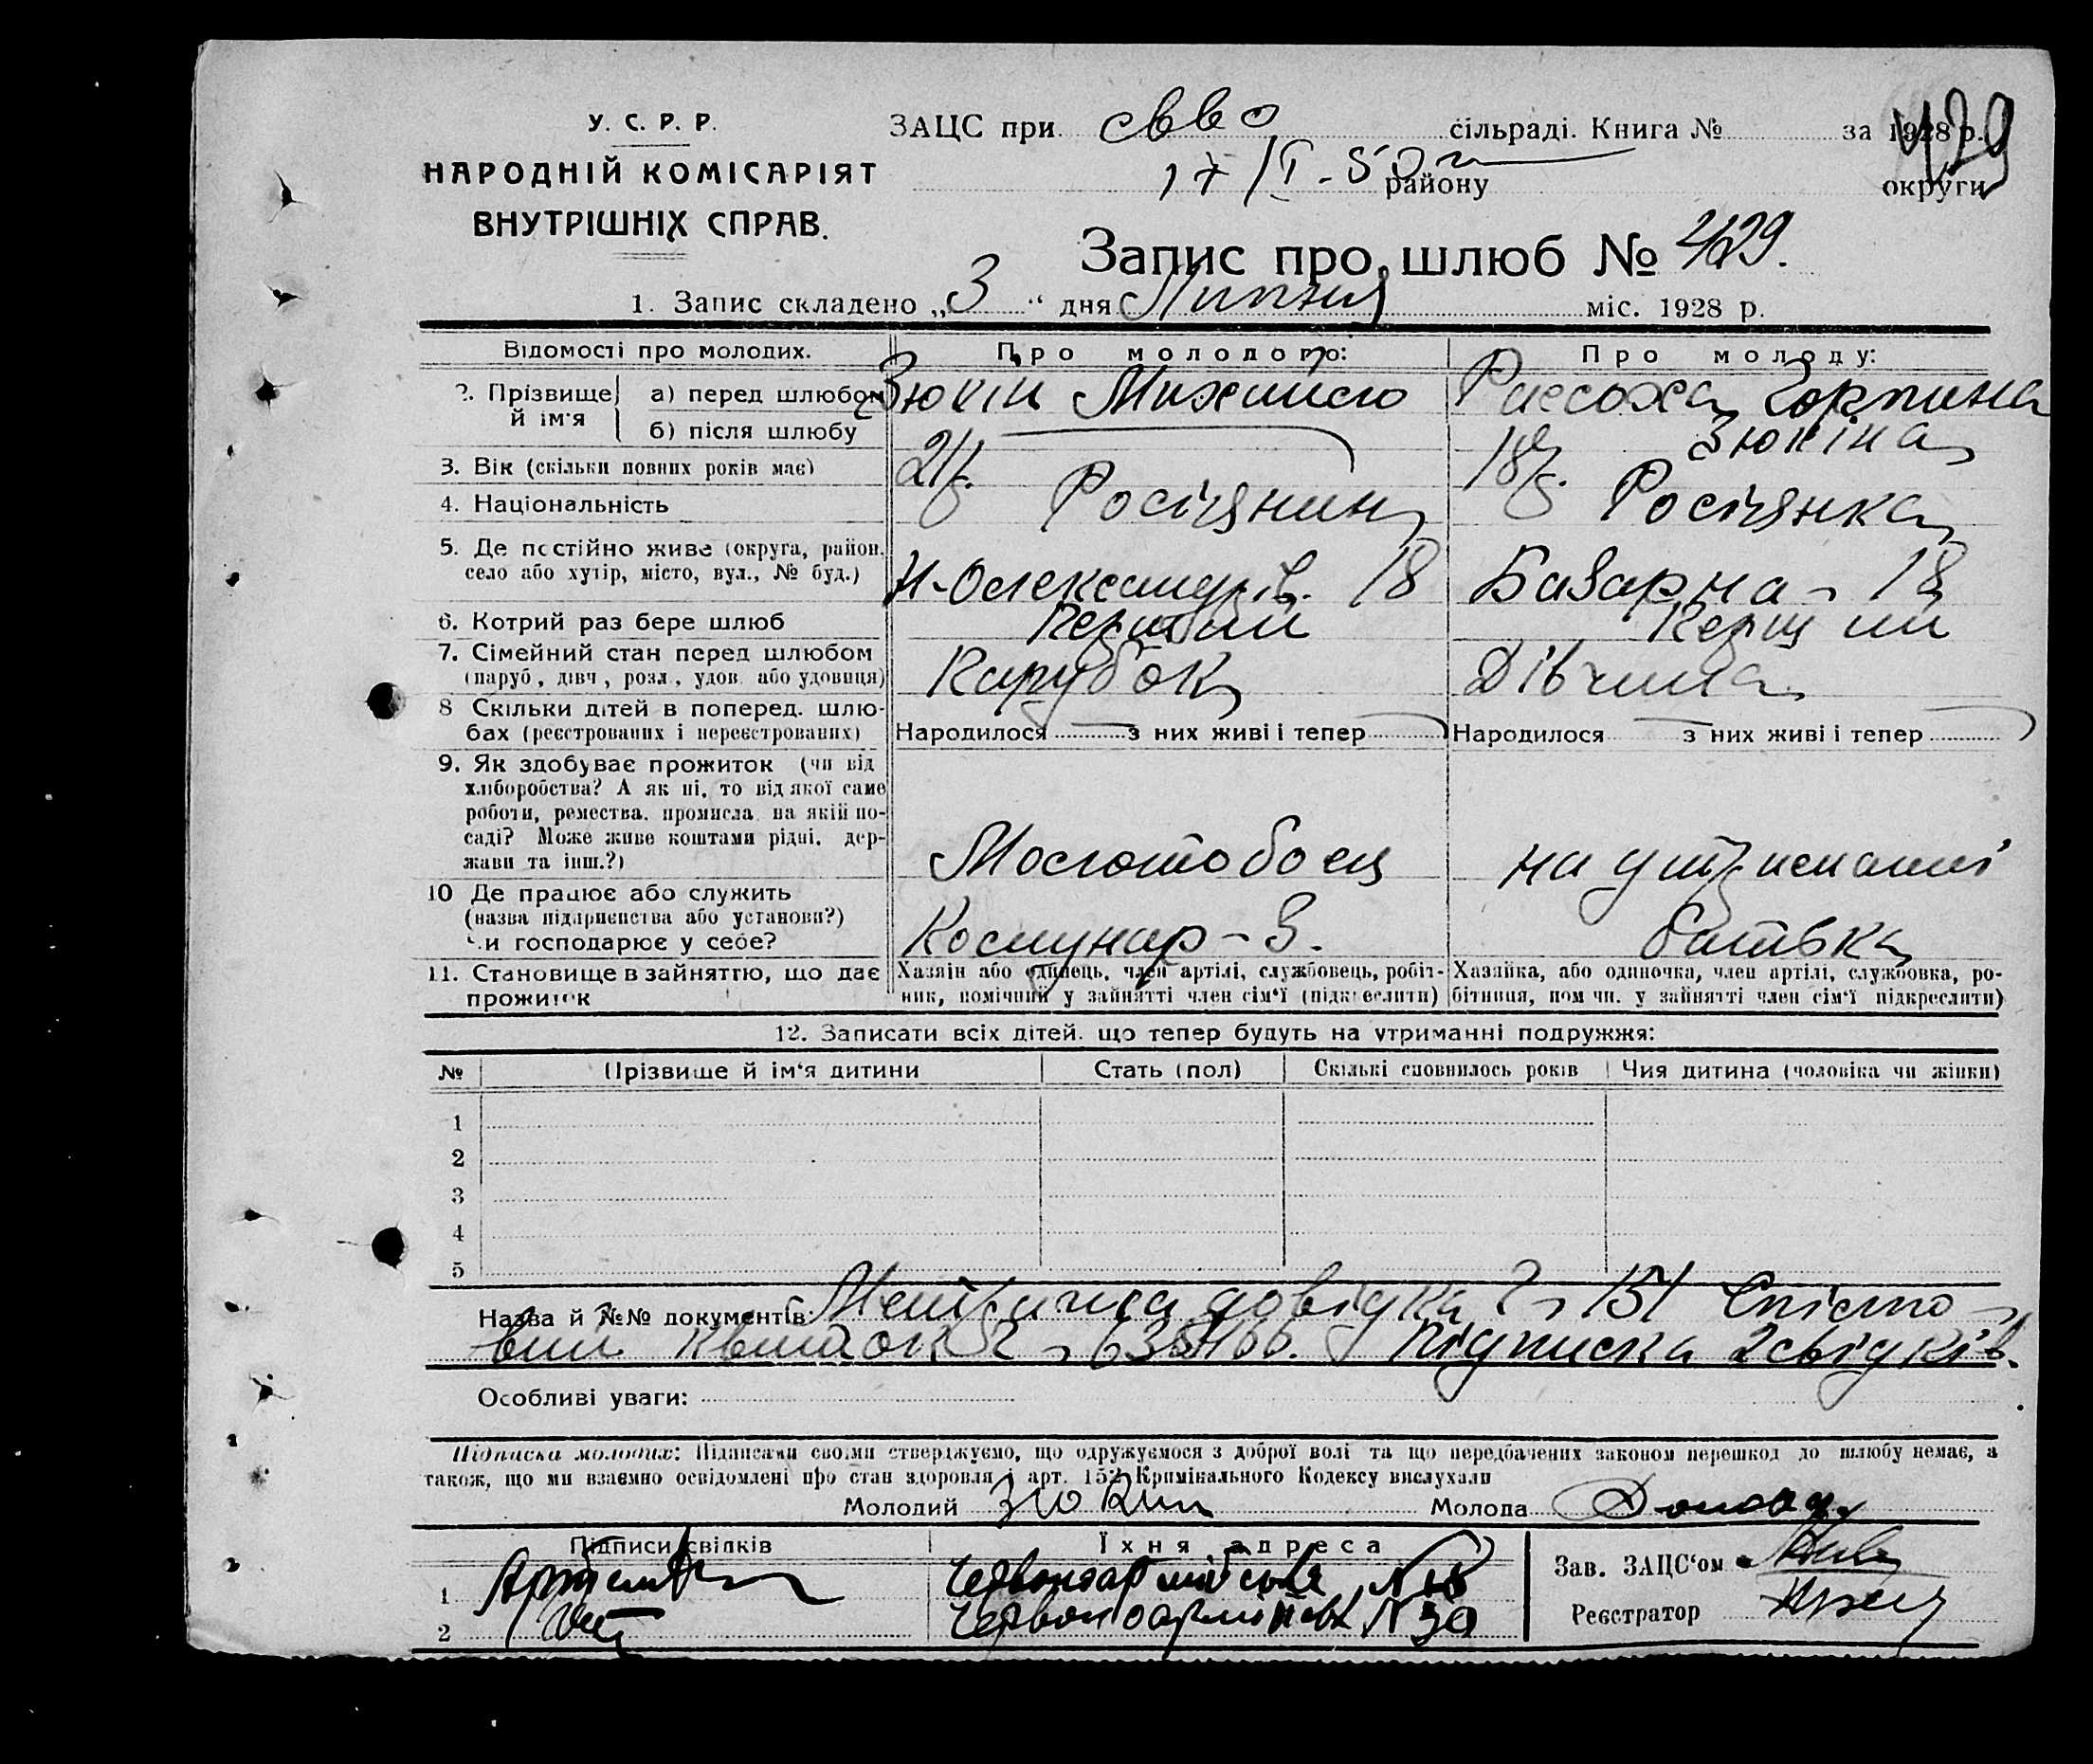 У. С. Р. Р.
НАРОДНІЙ КОМІСАРІЯТ
ВНУТРІШНІХ СПРАВ.
ЗАЦС при свво сільраді. Книга № за 1928 р.
429
17/ІІ-50 г району округи
Запис про шлюб № 429.
1. Запис складено „3“ дня Липня міс. 1928 р.
Відомості про молодих. Про молодого: Про молоду:
2. Прізвище й ім'я а) перед шлюбом Зюкін Михайло Рассоха Горпина
б) після шлюбу Зюкіна
3. Вік (скільки повних років має) 21 р. 18 р.
4. Національність Росіянин Росіянка
5. Де постійно живе (округа, район, село або хутір, місто, вул., № буд.) Н-Олександрів. 18 Базарна - 18
6. Котрий раз бере шлюб Перший Перший
7. Сімейний стан перед шлюбом (паруб., дівч., розл., удов. або удовиця) Парубок Дівчина
8 Скільки дітей в поперед. шлюбах (реєстрованих і нереєстрованих) Народилося з них живі і тепер Народилося з них живі і тепер
9. Як здобуває прожиток (чи від хліборобства? А як ні, то від якої саме роботи, ремества, промисла, на якій посаді? Може живе коштами рідні, держави та інш.?) Молотобоец на утриманні
10 Де працює або служить (назва підприємства або установи?) Чи господарює у себе? Комунар-З. батька
11. Становище в зайняттю, що дає прожиток Хазяін або одинець, член артілі, службовець, робітник, помічний у зайнятті член сім'ї (підкреслити) Хазяйка, або одиночка, член артілі, службовка, робітниця, помічн. у зайнятті член сім'ї підкреслити)
12. Записати всіх дітей, що тепер будуть на утриманні подружжя:
№ Прізвище й ім'я дитини Стать (пол) Скількі сповнилось років Чия дитина (чоловіка чи жінки)
1
2
3
4
5
Назва й №№ документів: Метрична довідка 151 Спісто
вий квиток 638166. Підписка 2 свідків.
Особливі уваги:
Підписка молодих: Підписами своїми стверджуємо, що одружуємося з доброї волі та що передбачених законом перешкод до шлюбу немає, а
також, що ми взаємно освідомлені про стан здоровля і арт. 152 Кримінального Кодексу вислухали
Молодий Зюкин Молода
Підписи свідків Їхня адреса
1 Червоноармійська № 18
2 Червоноармійськ № 30
Зав. ЗАЦС'ом
Реєстратор